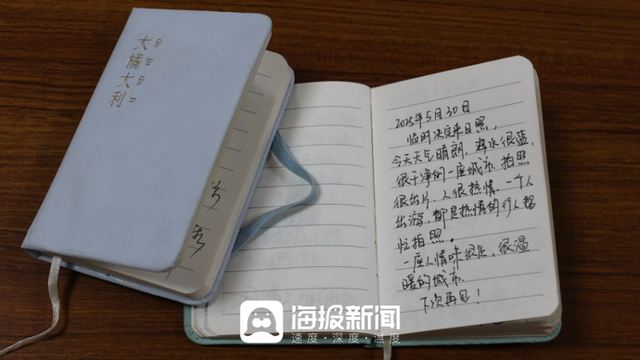 大
橘
大
利
2025年5月30日
临时决定来日照,
今天天气晴朗,海水很蓝,
很干净的一座城市,拍照
很出片,人很热情,一个人
出游,都是热情的行人帮
忙拍照。
一座人情味很足,很温
暖的城市。
下次再见!
海报新闻
速度·深度·温度